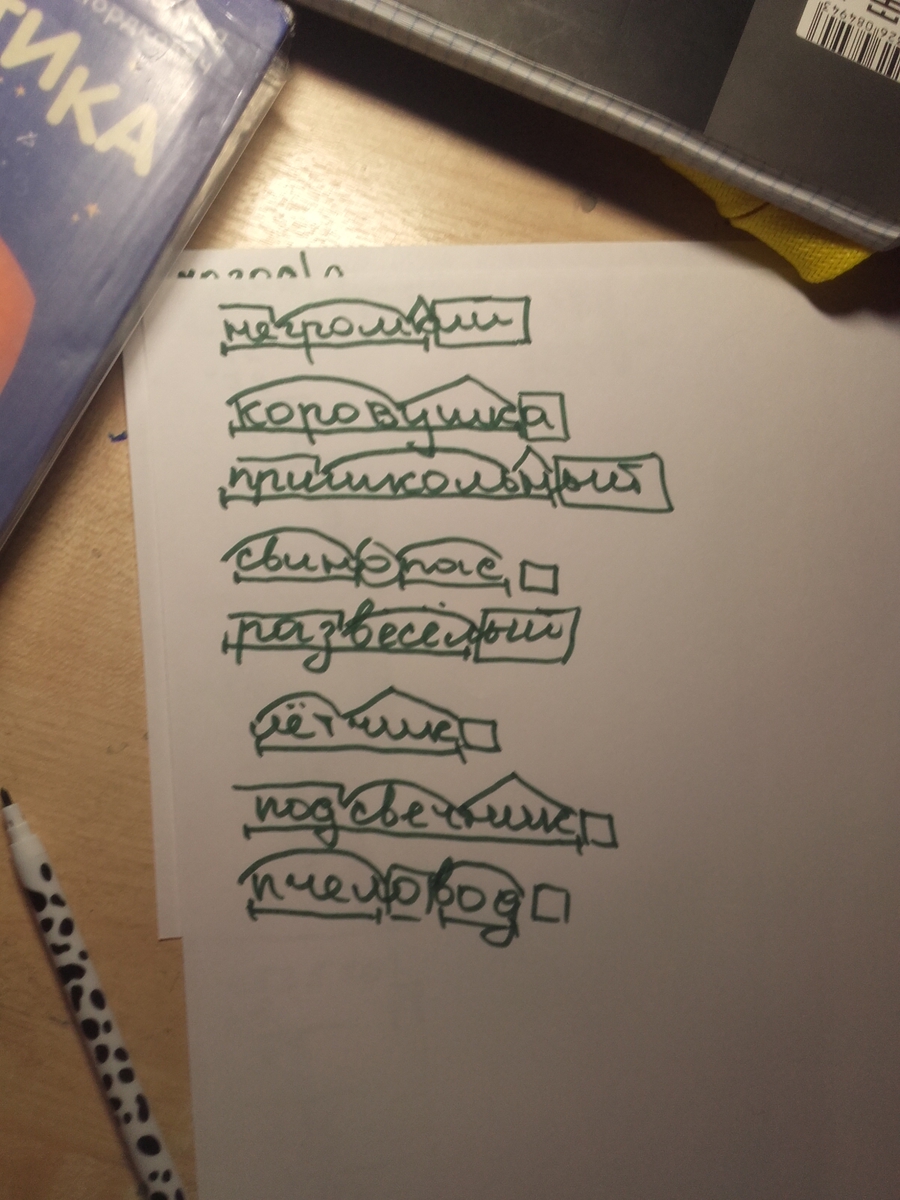 ТИКА
негромкий
коровушка
пришкольный
свинопас
развесёлый
лётчик
подсвечник
пчеловод